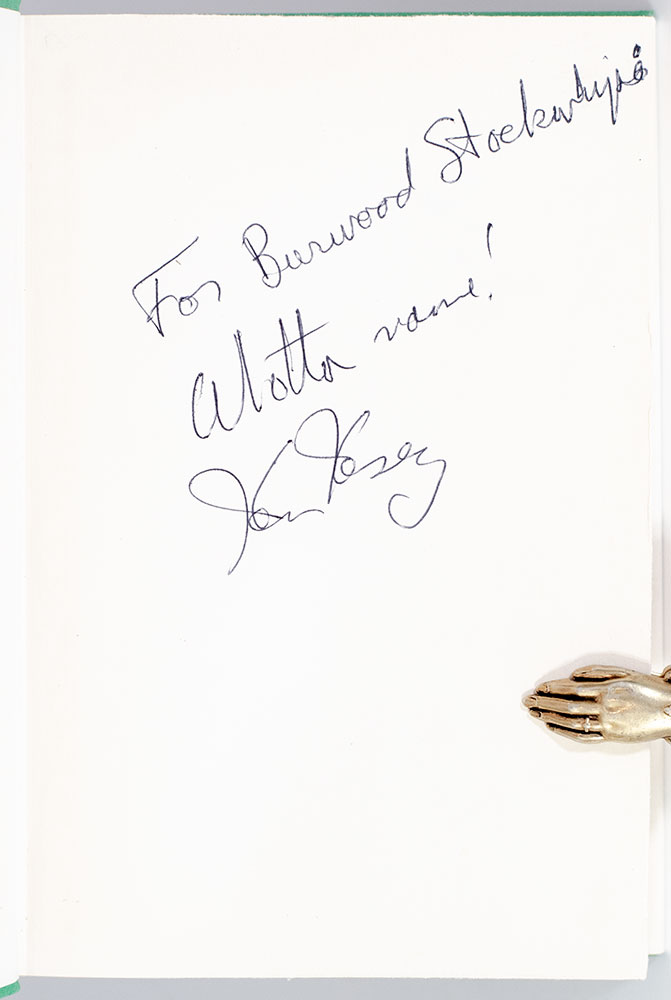 For Burwood Stockwhip:
Whotta name!
Ken Kesey